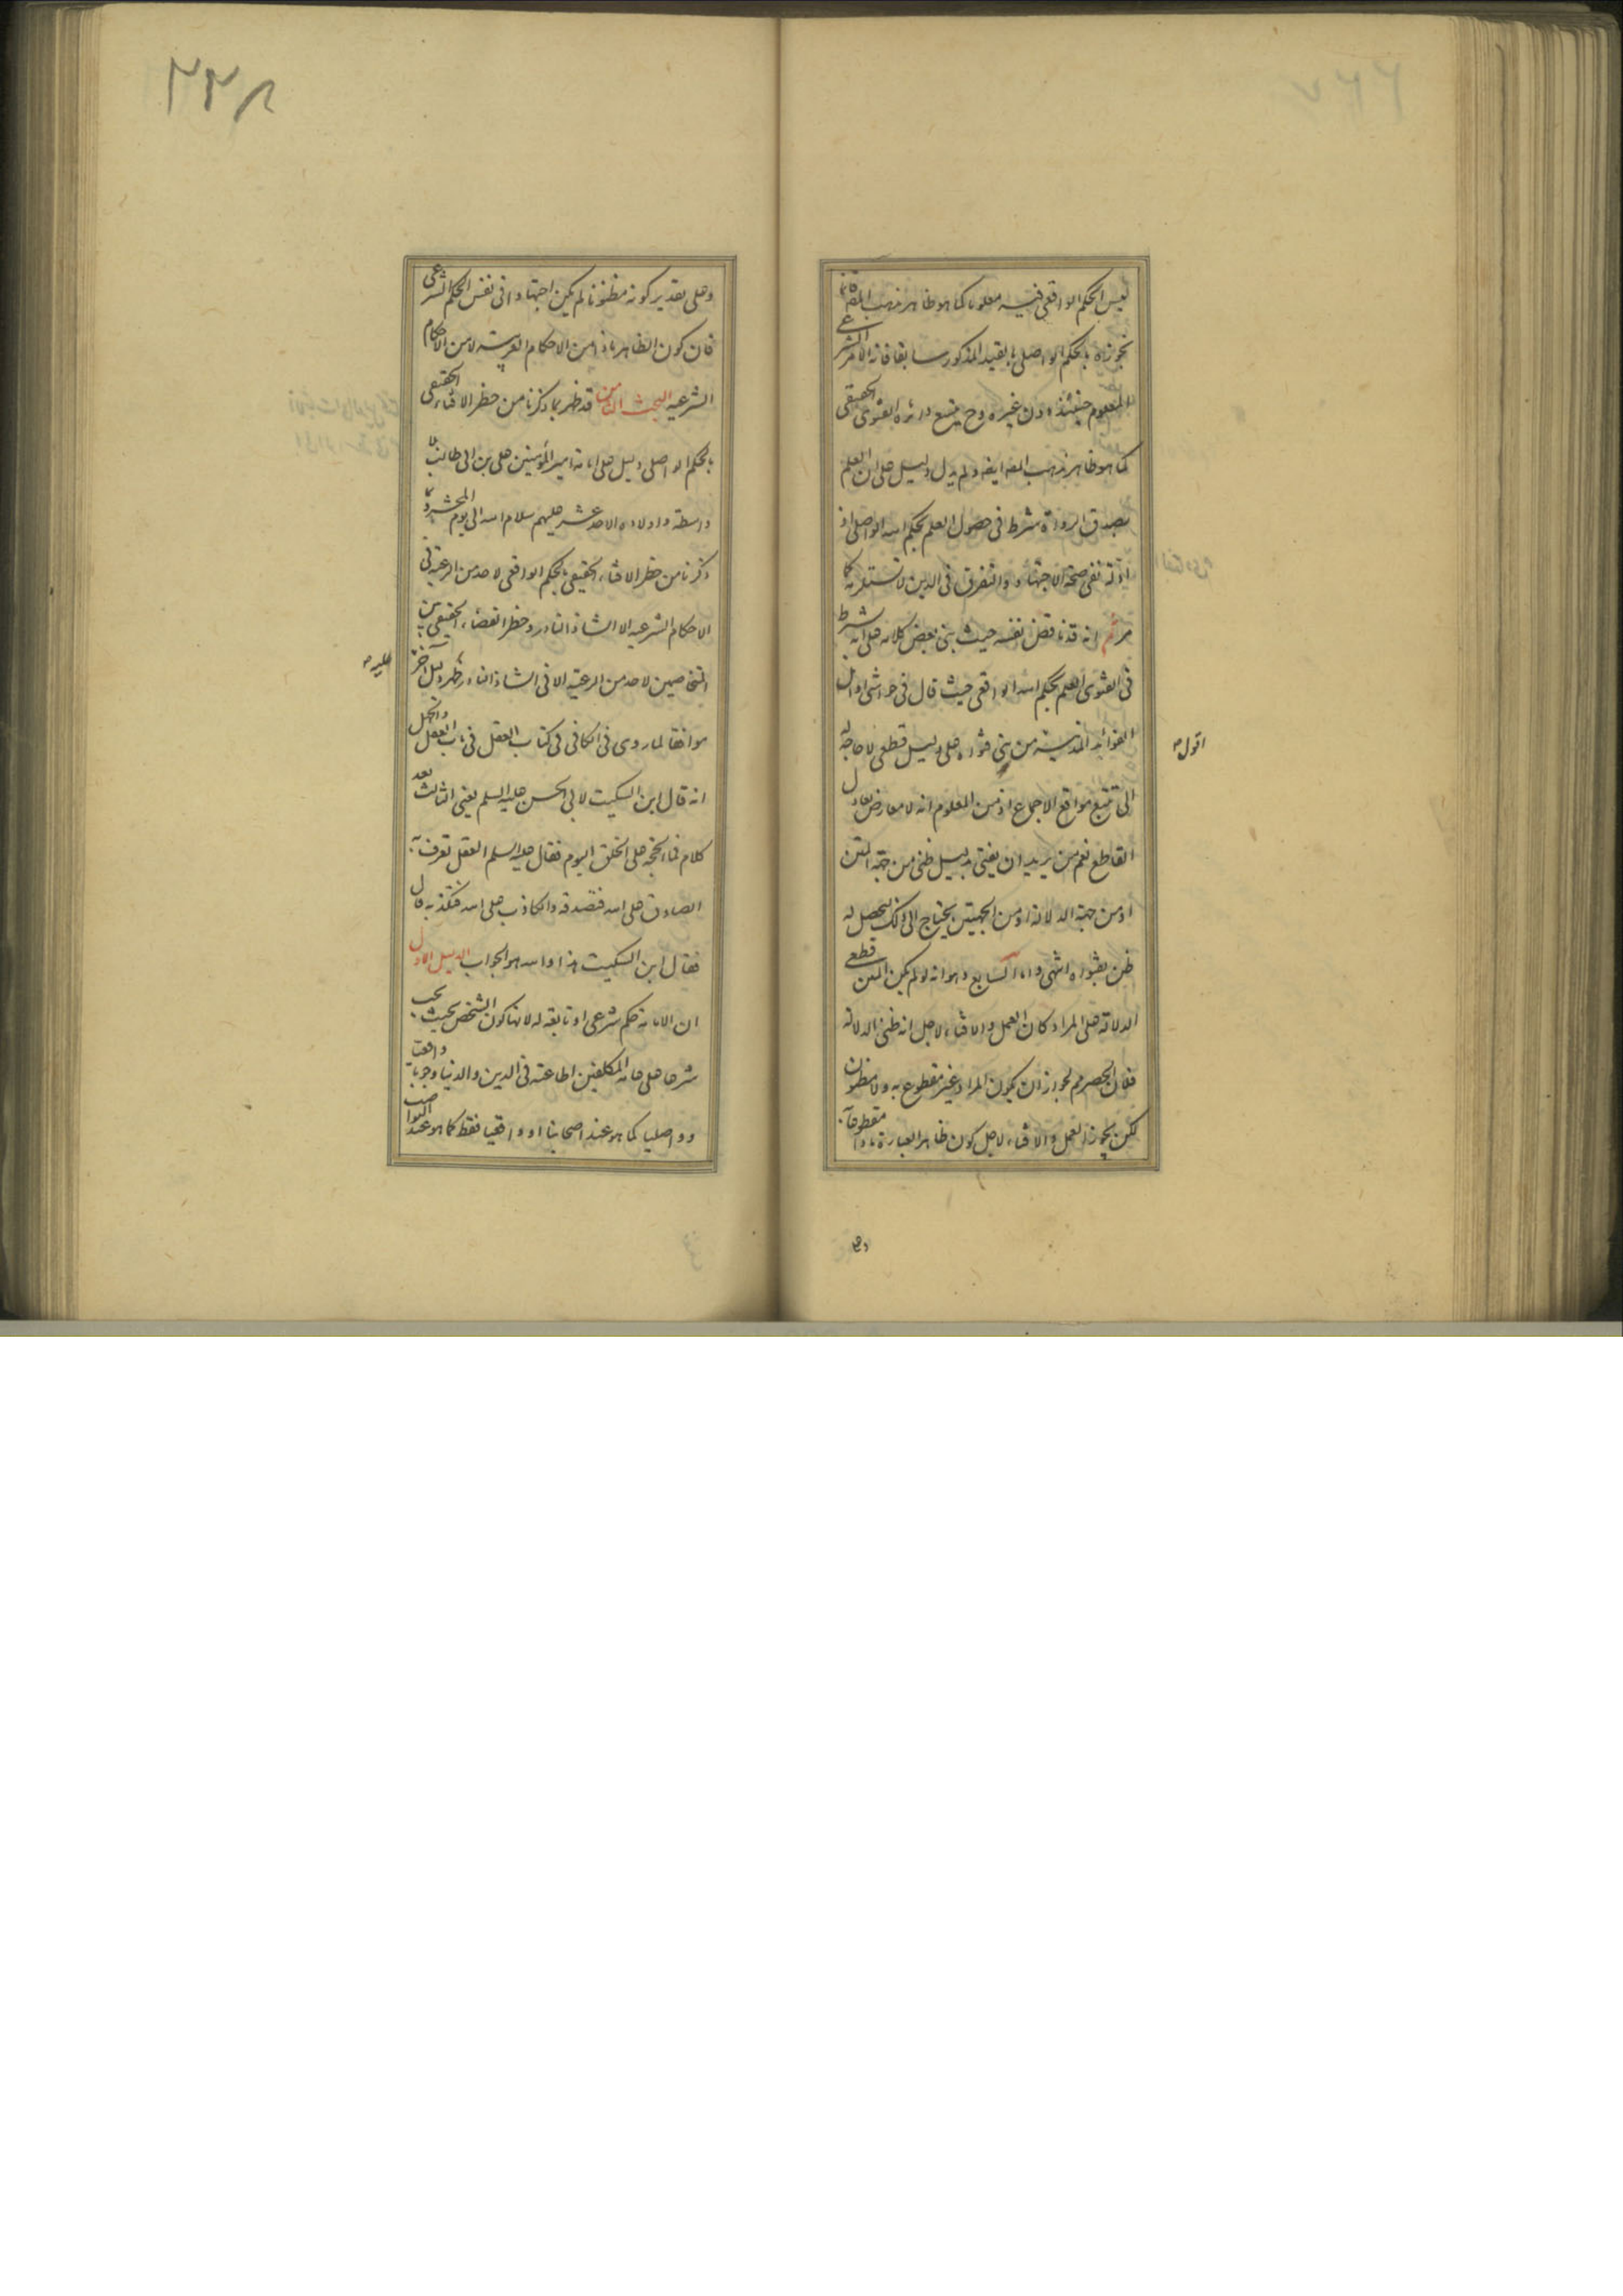 ليس الحكم الواقعي فيه معلوما كما هو ظاهر مذهب المص فانما
نجوزه بالحكم الواصلي بالقيد المذكور سابقا فانه الامر الشرعي
المعلوم حينئذ دون غيره وح يتسع دائرة الفتوى الحقيقي
كما هو ظاهر مذهب المص ايضا ولم يدل دليل على ان العلم
بصدق الرواة شرط في حصول العلم بحكم الله الواصلي اذ
ادلة نفي صحة الاجتهاد والتفرق في الدين لا تستلزمه كما
مر ثم انه قد ناقض نفسه حيث بنى بعض كلامه على انه شرط
في الفتوى العلم بحكم الله الواقعي حيث قال في حواشي اوائل
الفوائد المدنية من بنى فتواه على دليل قطعي لا حاجة له
اقول
الى تتبع مواقع الاجماع اذ من المعلوم انه لا معارض يعادل
القاطع نعم من يريد ان يفتي بدليل ظني من جهة المتن
او من جهة الدلالة او من الجهتين يحتاج الى ذلك ليحصل له
ظن بفتواه انتهى واما السابع وهو انه لو لم يكن المتن قطعي
الدلالة على المراد كان العمل والافتاء لاجل انه ظني الدلالة
فلان الحصر مم لجواز ان يكون المراد غير مقطوع به ولا مظنون
لكن يجوز العمل والافتاء لاجل كون ظاهر العبارة ماذا مقطوعا به
وعلى
٢٣٨
وعلى تقدير كونه مظنونا لم يكن اجتهادا في نفس الحكم الشرعي
فان كون الظاهر ماذا من الاحكام العربية لا من الاحكام
الشرعية البحث الثامن قد ظهر بما ذكرنا من حظر الافتاء الحقيقي
بالحكم الواصلي دليل على امامة امير المؤمنين علي بن ابي طالب بلا
واسطة واولاده الاحد عشر عليهم سلام الله الى يوم المحشر وبما
ذكرنا من حظر الافتاء الحقيقي بالحكم الواقعي لاحد من الرعية في
الاحكام الشرعية الا الشاذ النادر وحظر القضاء الحقيقي بين
المتخاصمين لاحد من الرعية الا في الشاذ النادر ظهر دليل آخر
عليه
موافقا لما روى في الكافي في كتاب العقل في باب العقل والجهل
انه قال ابن السكيت لابي الحسن عليه السلم يعني الثالث بعد
كلام فما الحجة على الخلق اليوم فقال عليه السلم العقل تعرف به
الصادق على الله فتصدقه والكاذب على الله فتكذبه قال
فقال ابن السكيت هذا والله هو الجواب الدليل الاول
ان الامامة حكم شرعي او تابعة له لانها كون الشخص بحيث يجب
شرعا على عامة المكلفين اطاعته في الدين والدنيا وجوبا واقعيا
وواصليا كما هو عند اصحابنا او واقعيا فقط كما هو عند النواصب